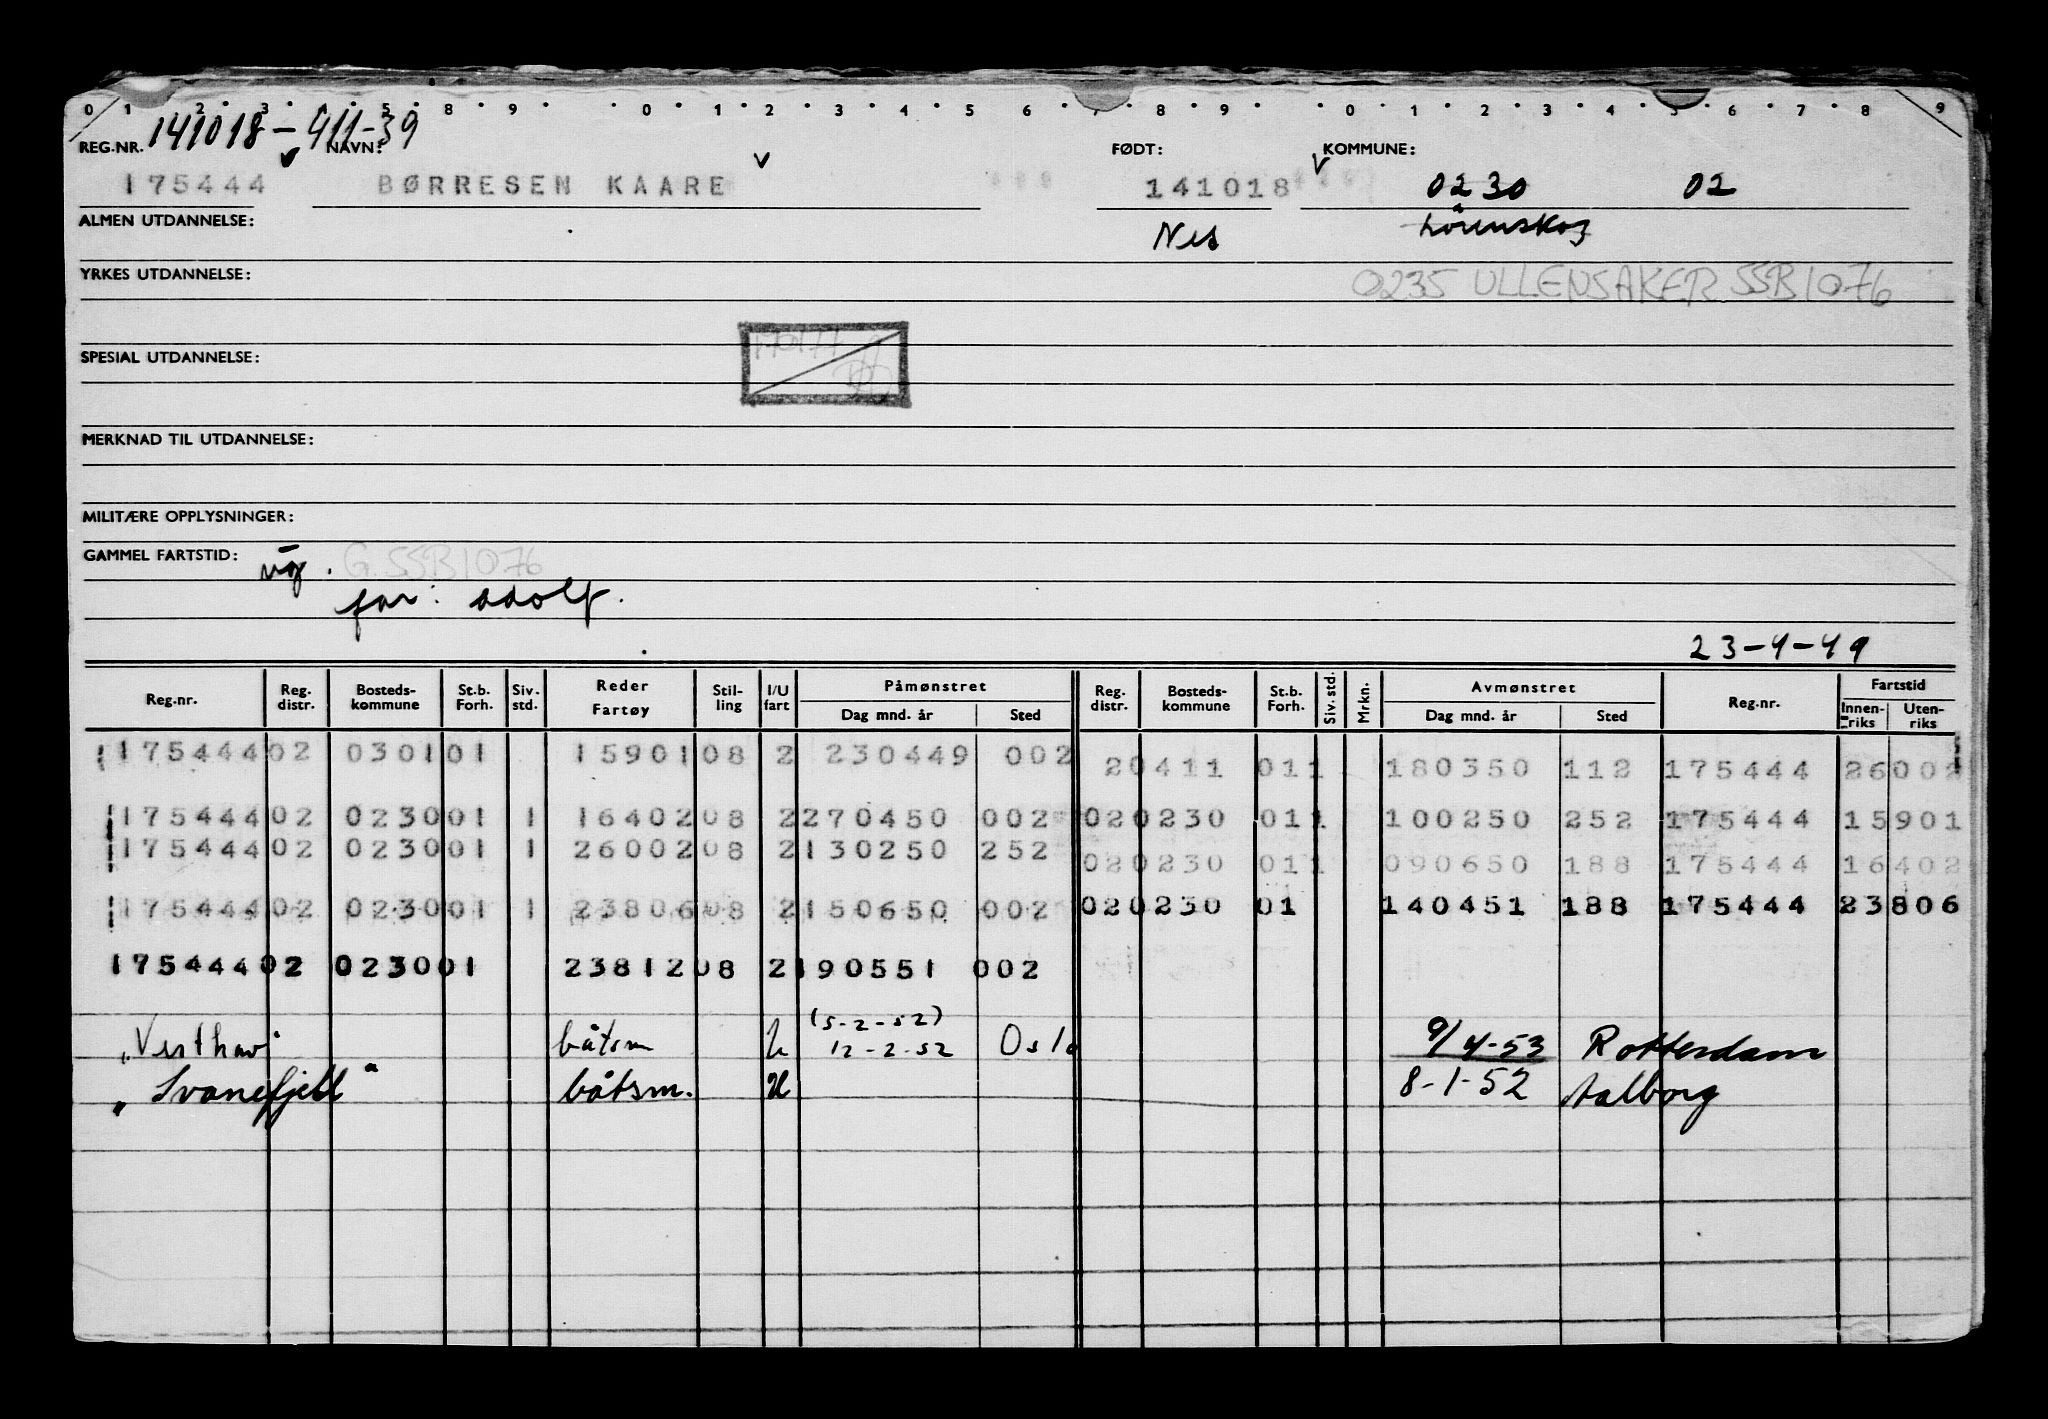 0 1 2 3 4 5 8 9 0 1 2 3 4 5 6 7 8 9 0 1 2 3 4 5 6 7 8 9
141018-411-39
REG.NR. NAVN: FØDT: KOMMUNE:
175444 BØRRESEN KAARE 141018 0230 02
ALMEN UTDANNELSE: Nes Lörenskog
YRKES UTDANNELSE: 0235 ULLENSAKER SSB1076
SPESIAL UTDANNELSE:
MERKNAD TIL UTDANNELSE:
MILITÆRE OPPLYSNINGER:
GAMMEL FARTSTID: G. SSB1076
far: Adolf.
23-4-49
Reg.nr. Reg. distr. Bosteds-kommune St.b. Forh. Siv. std. Reder Fartøy Stil-ling I/U fart Påmønstret Dag mnd. år Sted Reg. distr. Bosteds-kommune St.b. Forh. Siv. std. Mrkn. Avmønstret Dag mnd. år Sted Reg.nr. Fartstid Innen-riks Uten-riks
175444 02 0301 01 15901 08 2 230449 002 20411 011 180350 112 175444 26002
175444 02 0230 01 1 16402 08 2 270450 002 020230 011 100250 252 175444 15901
175444 02 0230 01 1 26002 08 2 130250 252 020230 011 090650 188 175444 16402
175444 02 0230 01 1 23806 08 2 150650 002 020230 01 140451 188 175444 23806
175444 02 0230 01 23812 08 2 190551 002
(5-2-52)
"Vesthav" båtsm U 12-2-52 Oslo 9/4-53 Rotterdam
"Svanefjell" båtsm. U 8-1-52 Aalborg